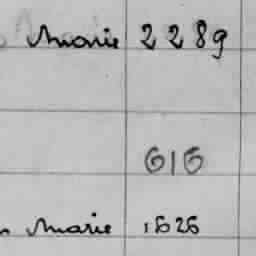 Marie 2289
616
Marie 1626